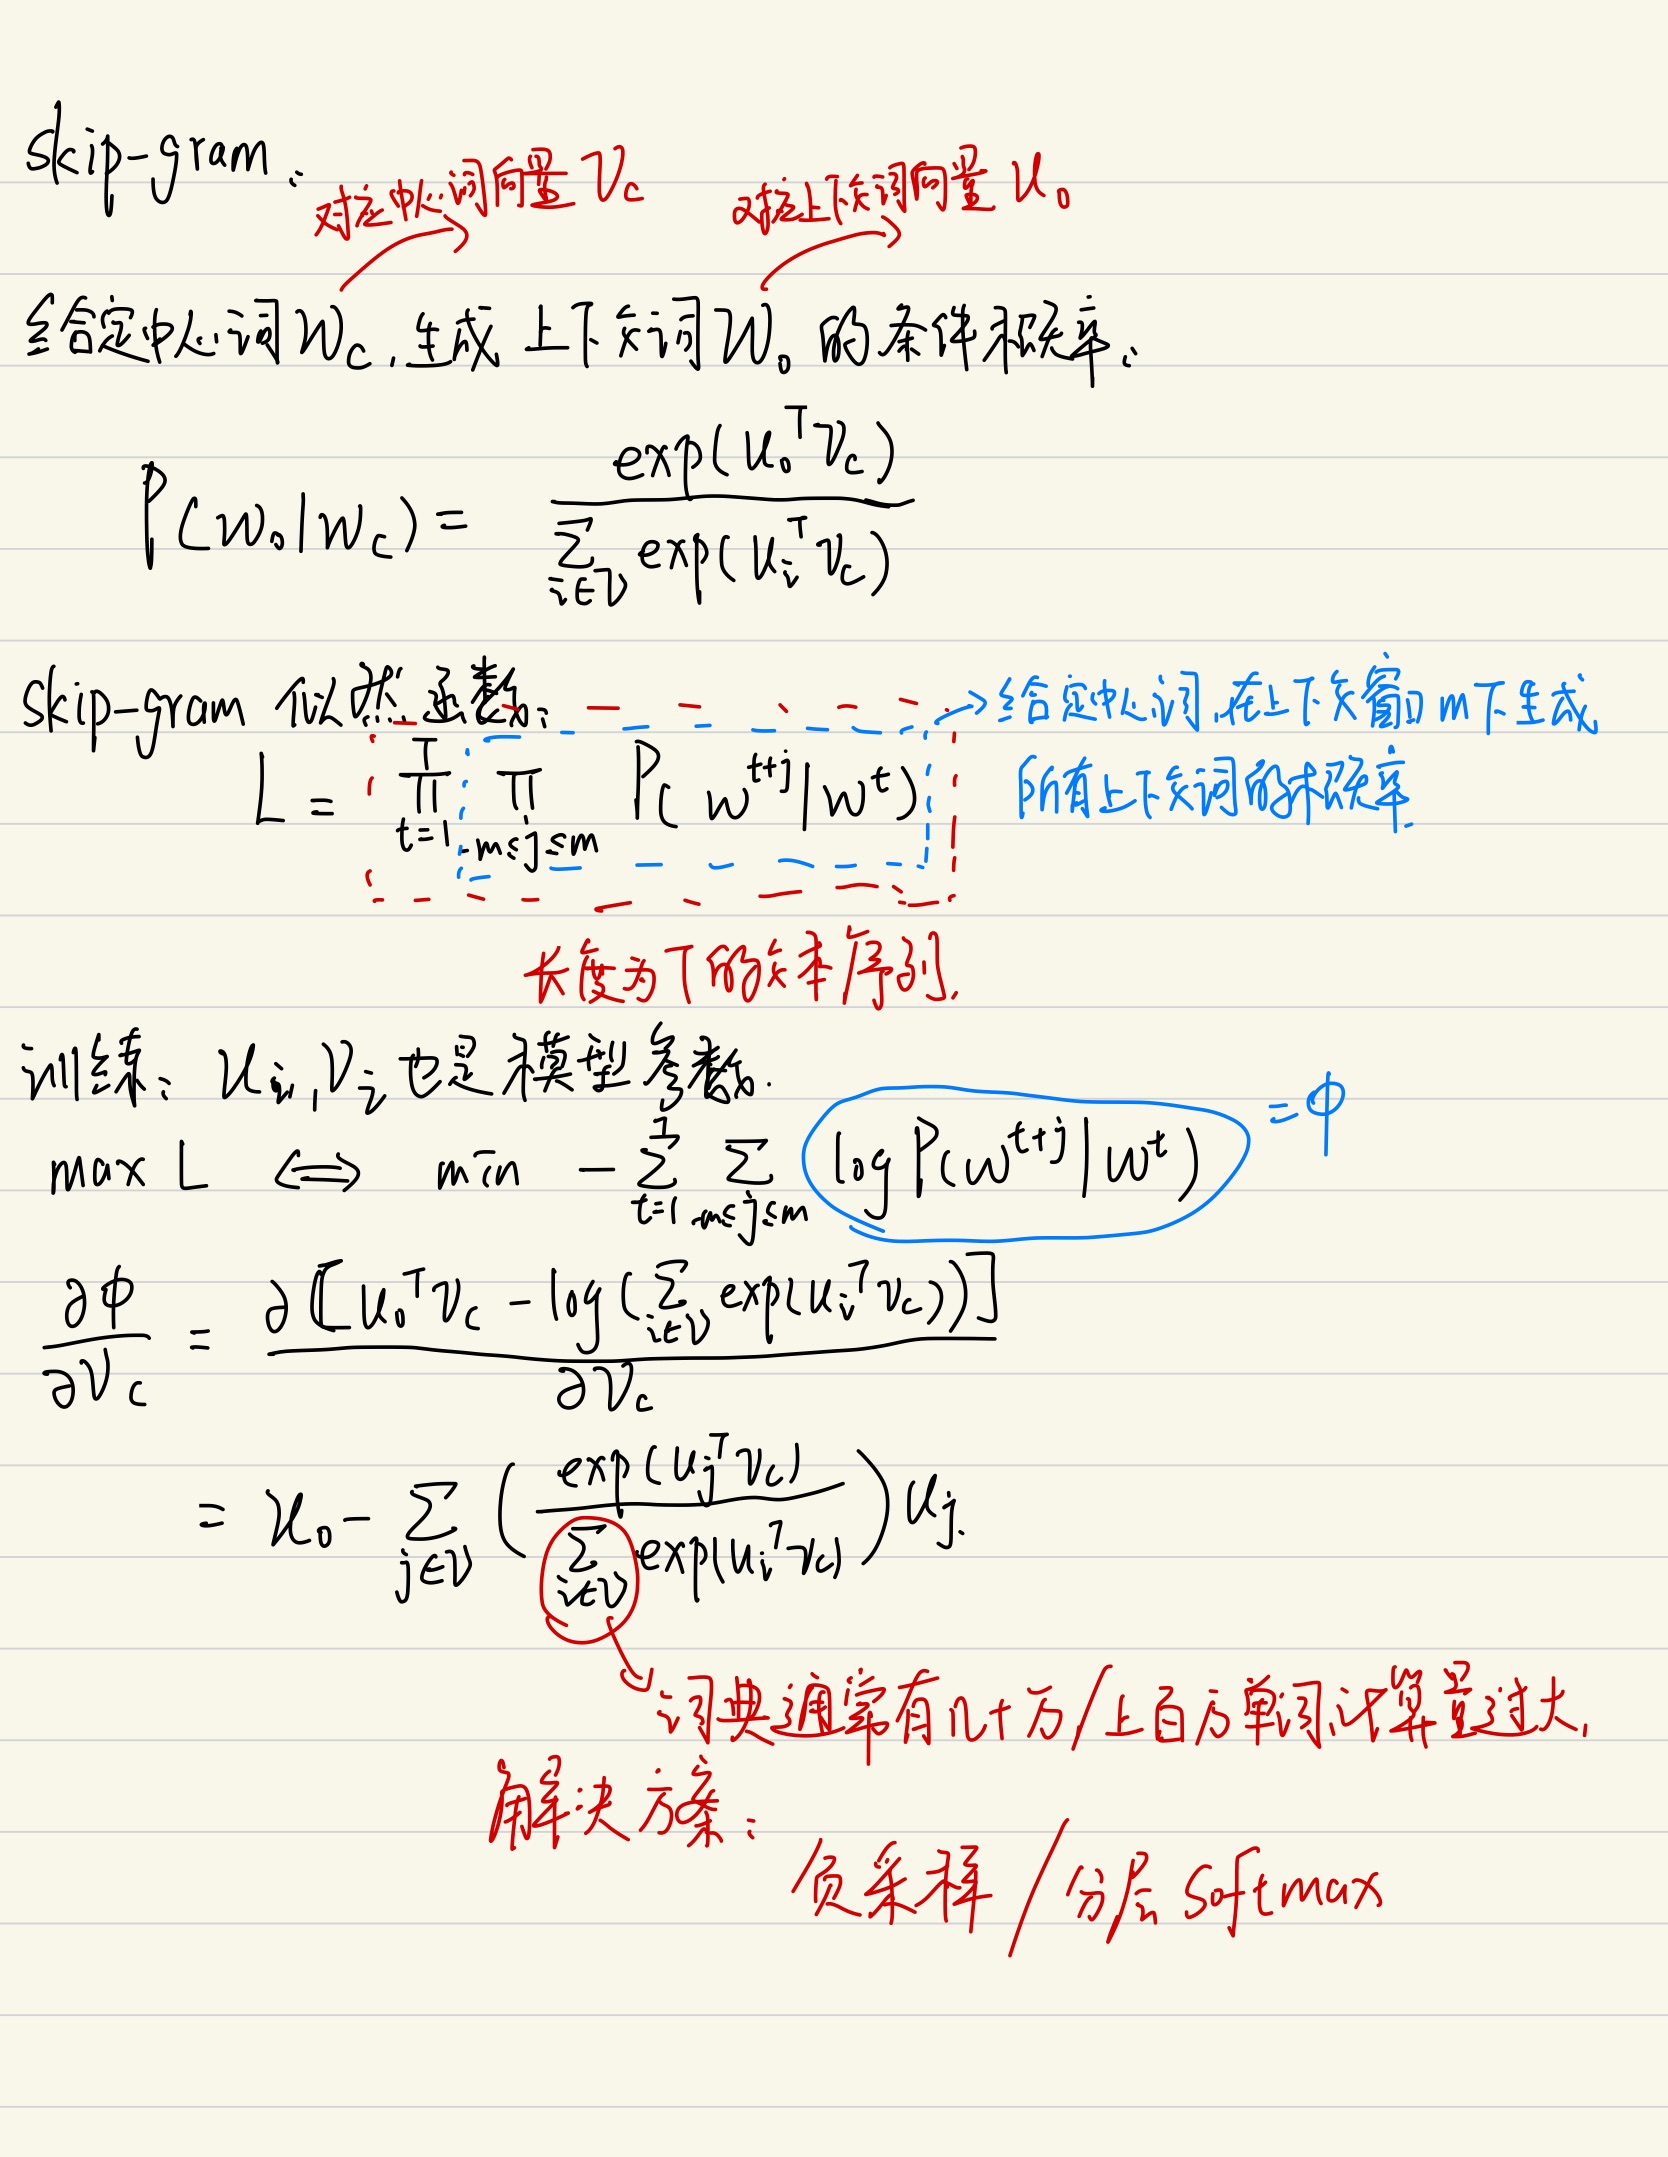 skip-gram:
对应中心词向量 Vc
对应上下文词向量 uo
给定中心词Wc,生成上下文词Wo的条件概率:
P(wo|wc) = exp(uo^T vc) / Σ_{i∈V} exp(ui^T vc)
skip-gram 似然函数:
→给定中心词,在上下文窗口m下生成
所有上下文词的概率.
L = ∏_{t=1}^{T} ∏_{-m≤j≤m} P(w^{t+j}|w^t)
长度为T的文本序列.
训练: ui, vi 也是模型参数.
max L ⟺ min -Σ_{t=1}^{T} Σ_{-m≤j≤m} log P(w^{t+j}|w^t) = φ
∂φ/∂Vc = ∂[uo^T vc - log(Σ_{i∈V} exp(ui^T vc))] / ∂Vc
= uo - Σ_{j∈V} ( exp(uj^T vc) / Σ_{i∈V} exp(ui^T vc) ) uj.
词典通常有几十万/上百万单词,计算量过大,
解决方案:
负采样 / 分层 softmax